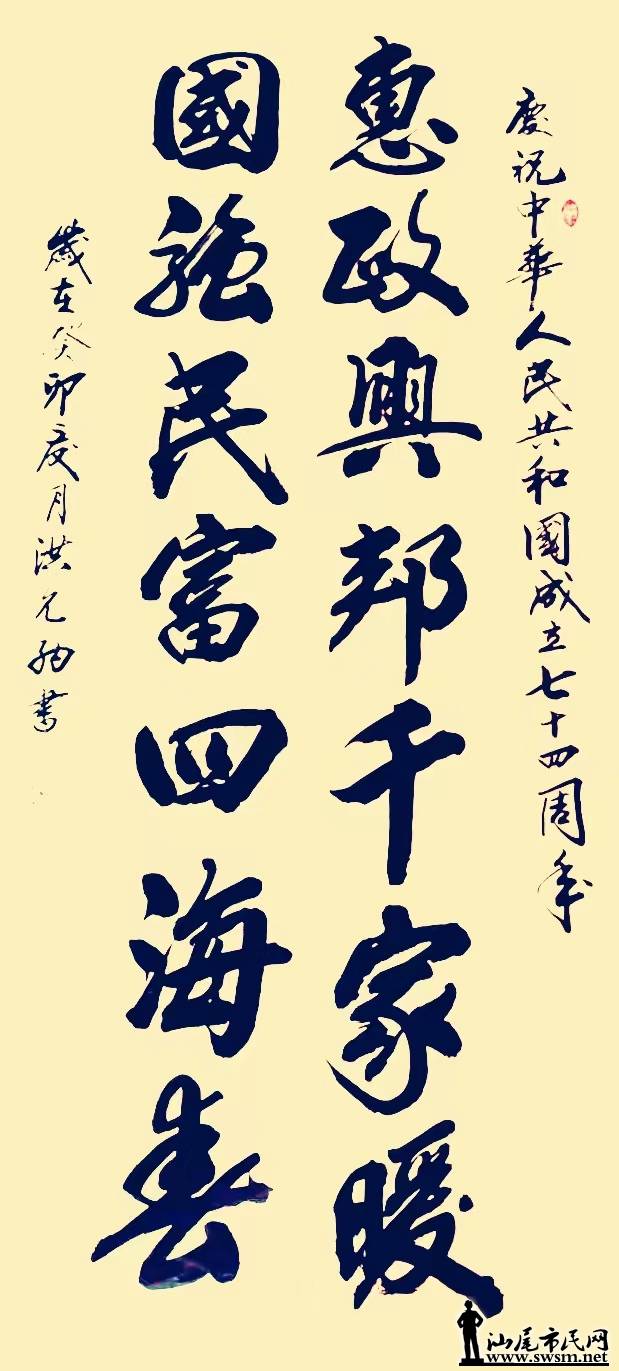 慶祝中華人民共和國成立七十四周年
惠政興邦千家暖
國強民富四海春
歲在癸卯夏月洪
書
汕尾市民网
www.swsm.net